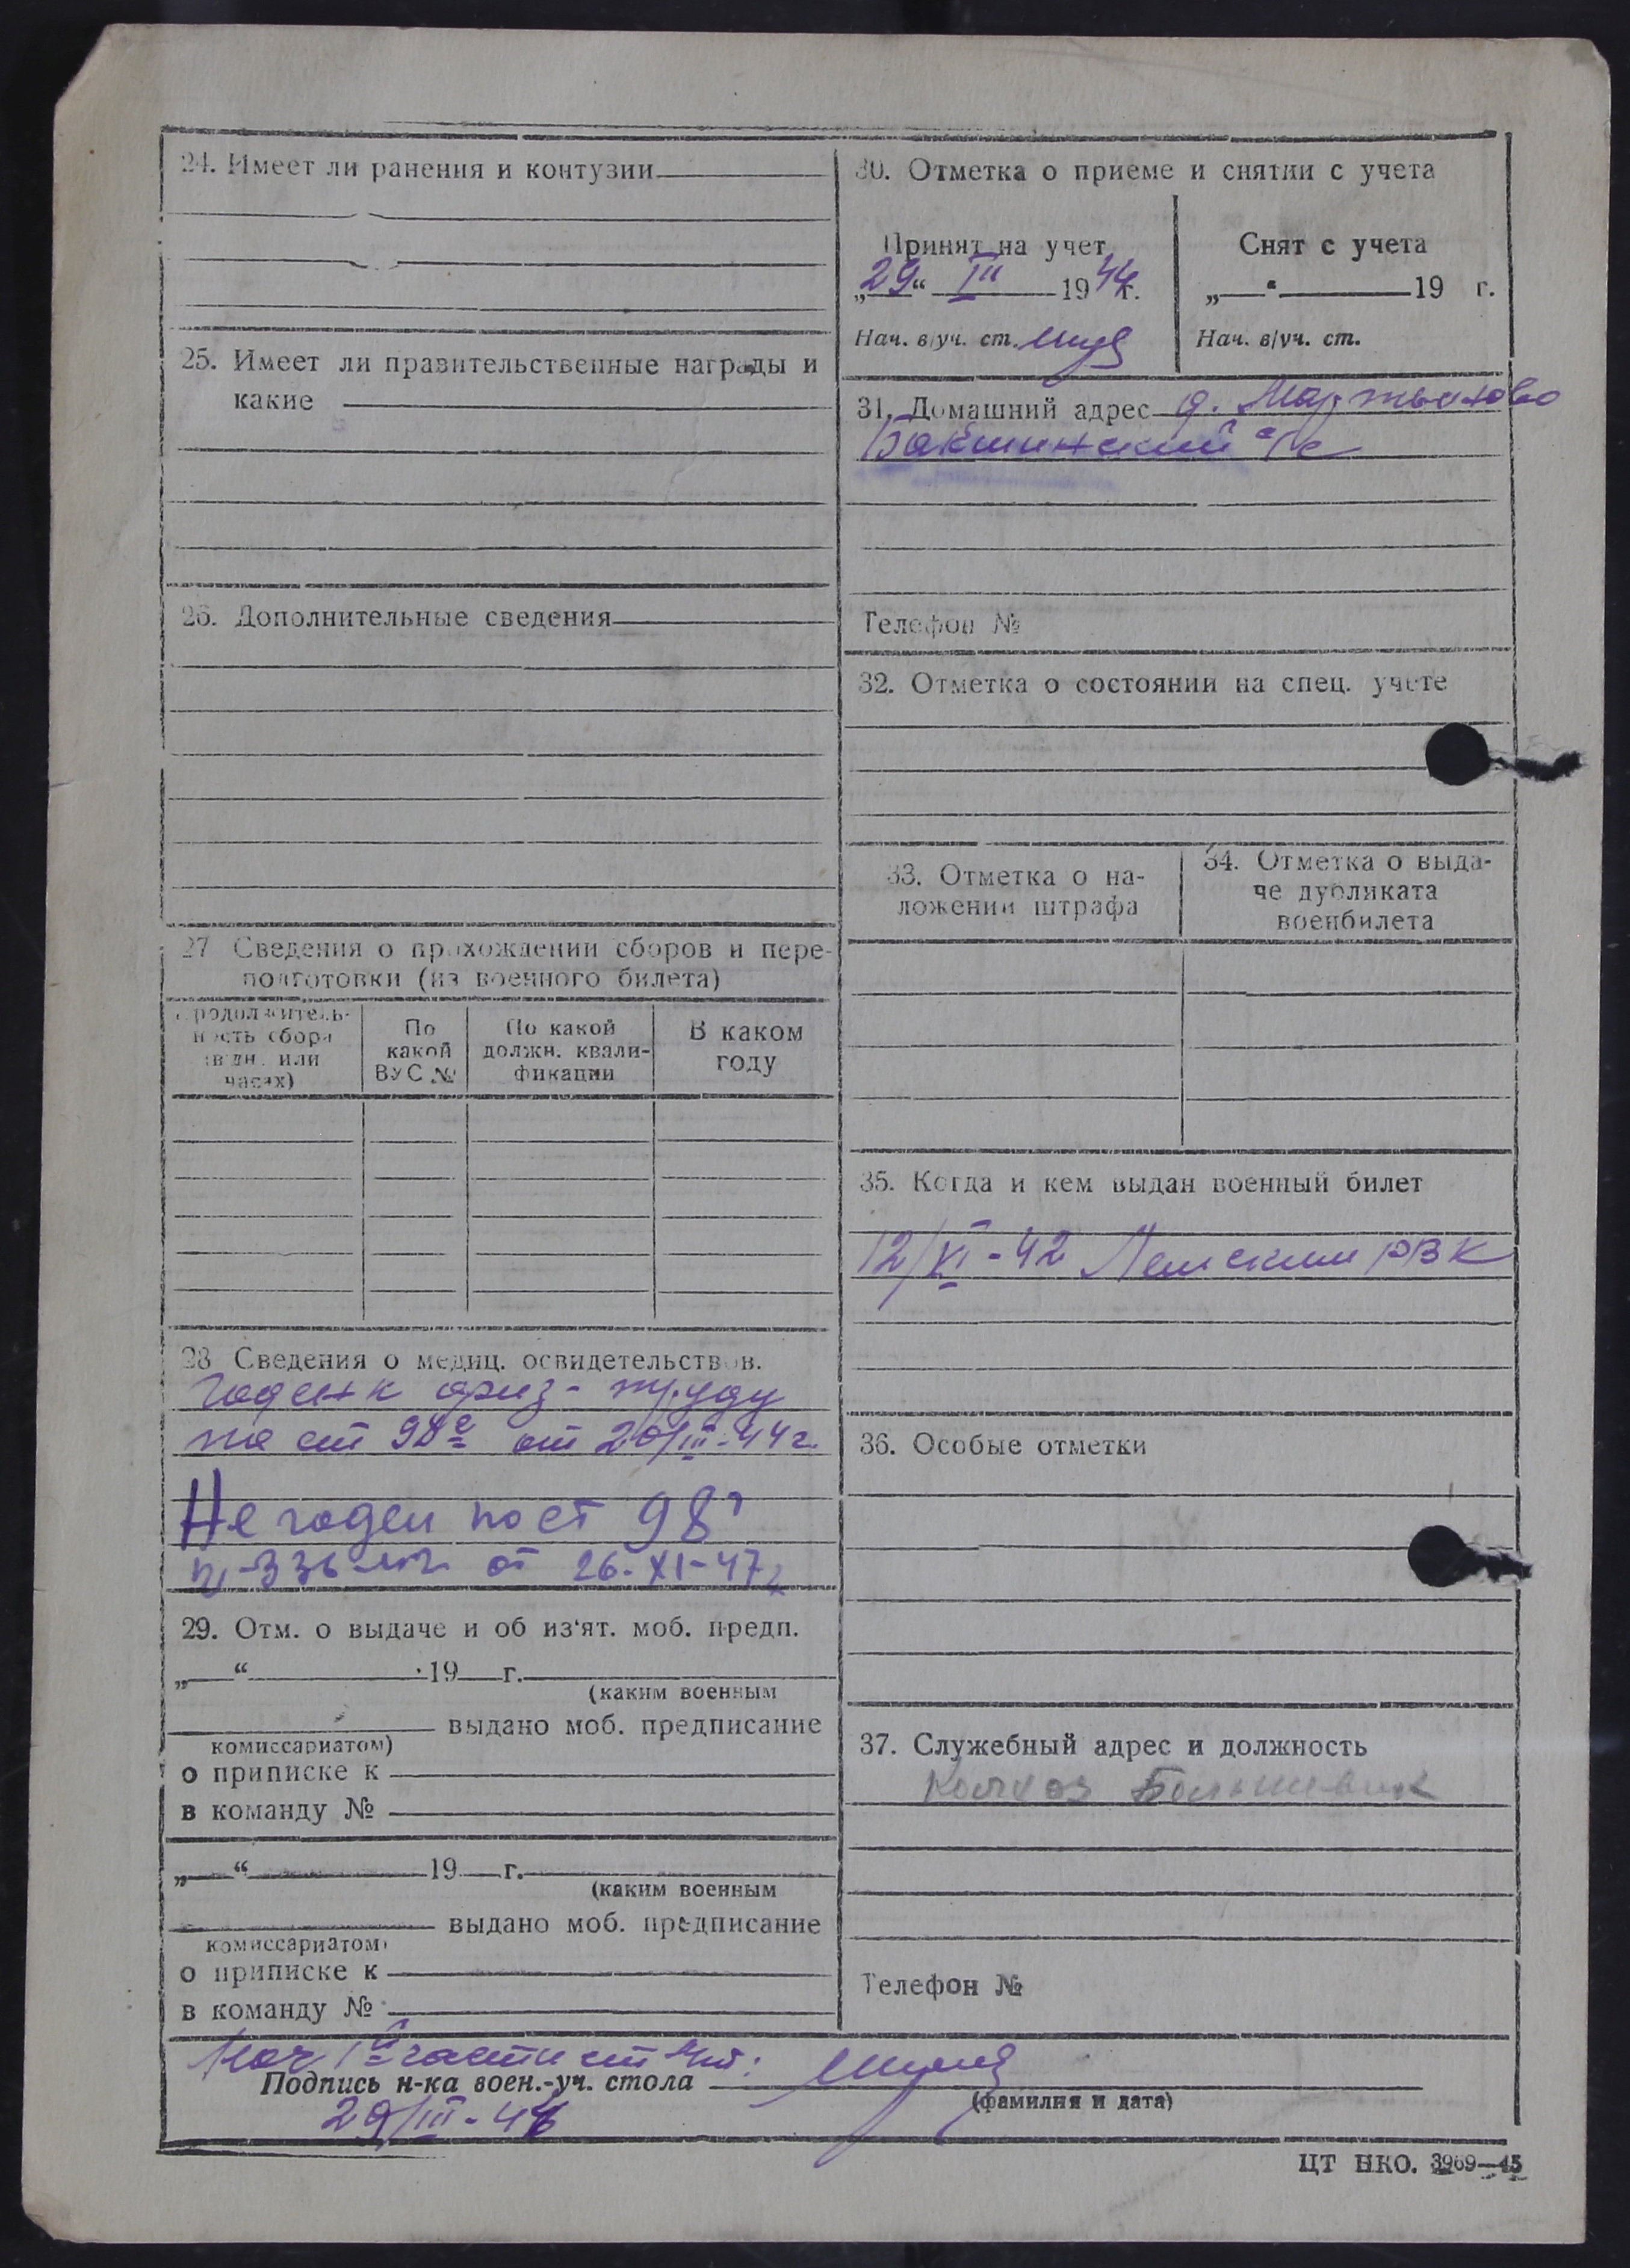 24. Имеет ли ранения и контузии
25. Имеет ли правительственные награды и
какие
26. Дополнительные сведения
27 Сведения о прохождении сборов и пере-
подготовки (из военного билета)
Продолжитель-
ность сбора
(в дн. или
часах)
По
какой
ВУС №
По какой
должн. квали-
фикации
В каком
году
28 Сведения о медиц. освидетельствов.
Годен к физ- труду
по ст 98г от 20/III-44 г.
Не годен по ст 98г
от 26-XI-47г
29. Отм. о выдаче и об из'ят. моб. предп.
„ “ 19 г.
(каким военным
выдано моб. предписание
комиссариатом)
о приписке к
в команду №
„ “ 19 г.
(каким военным
выдано моб. предписание
комиссариатом)
о приписке к
в команду №
30. Отметка о приеме и снятии с учета
Принят на учет
„29“ III 1946 г.
Нач. в/уч. ст.
Снят с учета
„ “ 19 г.
Нач. в/уч. ст.
31. Домашний адрес д. Мартьяново
Бакшинский с/с
Телефон №
32. Отметка о состоянии на спец. учете
33. Отметка о на-
ложении штрафа
34. Отметка о выда-
че дубликата
военбилета
35. Когда и кем выдан военный билет
12/XI-42 РВК
36. Особые отметки
37. Служебный адрес и должность
Колхоз Большевик
Телефон №
Нач 1й части
Подпись н-ка воен.-уч. стола
(фамилия и дата)
29/III-46
ЦТ НКО. 3969—45